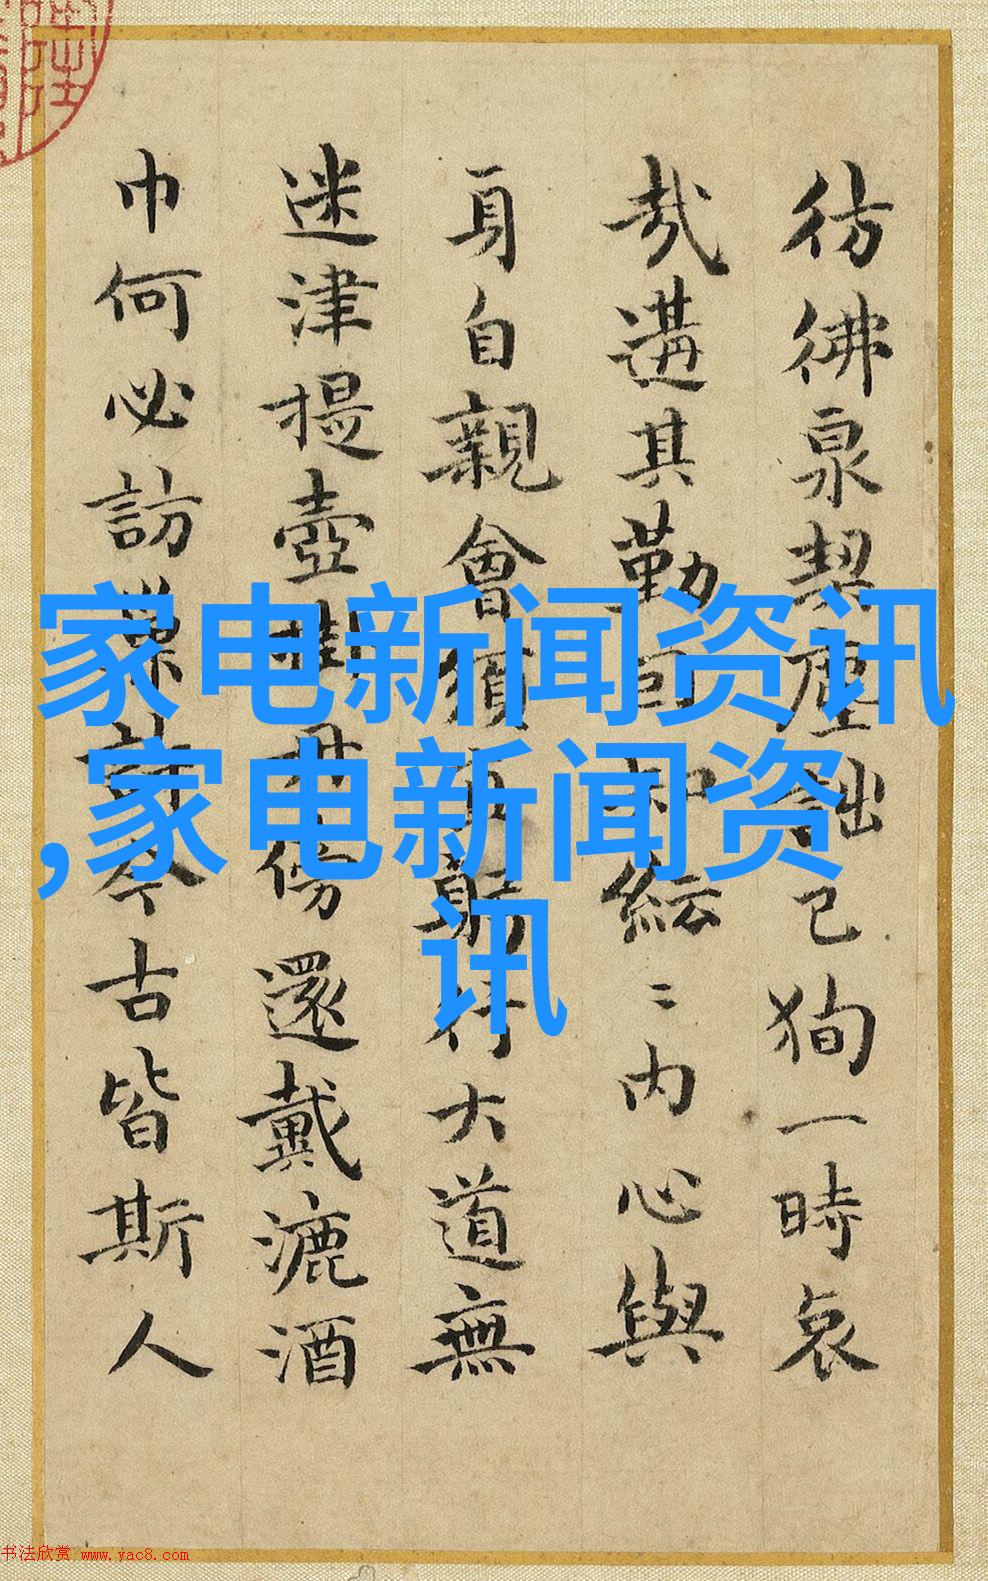 彷彿泉契塵詘已狥一時哀
哉遘其勤 和紜〻内心與
身自親會須 躬行大道無
迷津提壺 傍還戴漉酒
巾何必訪 今古皆斯人
家电新闻资讯
,家电新闻资
讯
书法欣赏 www.yac8.com